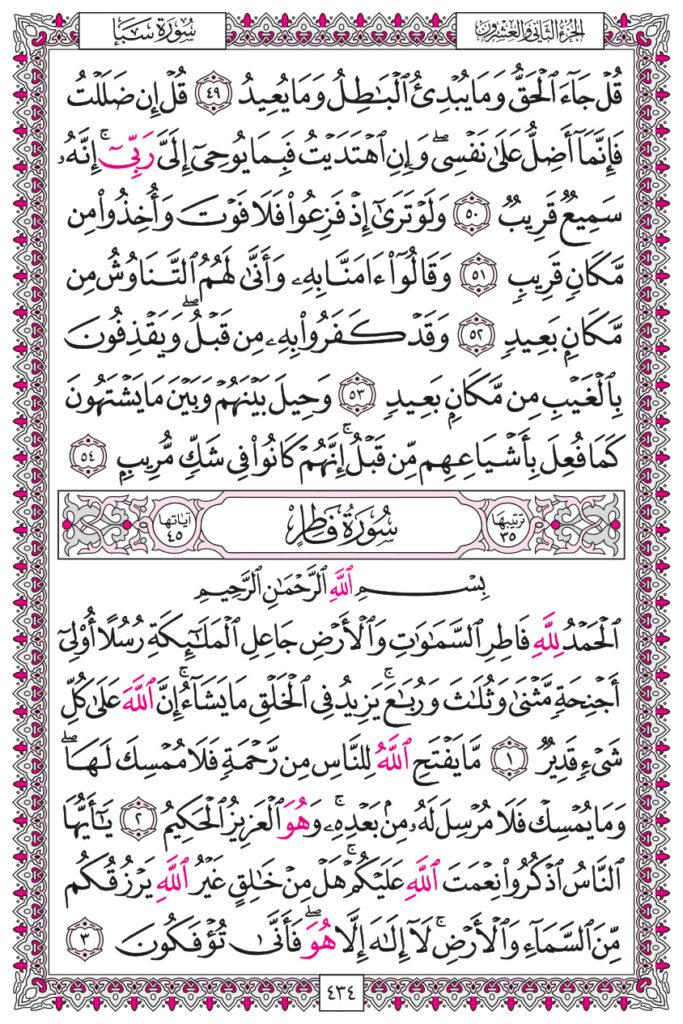 الجزء الثاني والعشرون
سورة سبإ
قُلْ جَآءَ ٱلْحَقُّ وَمَا يُبْدِئُ ٱلْبَٰطِلُ وَمَا يُعِيدُ ٤٩ قُلْ إِن ضَلَلْتُ
فَإِنَّمَآ أَضِلُّ عَلَىٰ نَفْسِىۖ وَإِنِ ٱهْتَدَيْتُ فَبِمَا يُوحِىٓ إِلَىَّ رَبِّىٓۚ إِنَّهُۥ
سَمِيعٌ قَرِيبٌ ٥٠ وَلَوْ تَرَىٰٓ إِذْ فَزِعُوا۟ فَلَا فَوْتَ وَأُخِذُوا۟ مِن
مَّكَانٍ قَرِيبٍ ٥١ وَقَالُوٓا۟ ءَامَنَّا بِهِۦ وَأَنَّىٰ لَهُمُ ٱلتَّنَاوُشُ مِن
مَّكَانٍۭ بَعِيدٍ ٥٢ وَقَدْ كَفَرُوا۟ بِهِۦ مِن قَبْلُۖ وَيَقْذِفُونَ
بِٱلْغَيْبِ مِن مَّكَانٍۭ بَعِيدٍ ٥٣ وَحِيلَ بَيْنَهُمْ وَبَيْنَ مَا يَشْتَهُونَ
كَمَا فُعِلَ بِأَشْيَاعِهِم مِّن قَبْلُۚ إِنَّهُمْ كَانُوا۟ فِى شَكٍّ مُّرِيبٍۭ ٥٤
ترتيبها ٣٥ سُورَةُ فَاطِرٍ آياتها ٤٥
بِسْمِ ٱللَّهِ ٱلرَّحْمَٰنِ ٱلرَّحِيمِ
ٱلْحَمْدُ لِلَّهِ فَاطِرِ ٱلسَّمَٰوَٰتِ وَٱلْأَرْضِ جَاعِلِ ٱلْمَلَٰٓئِكَةِ رُسُلًا أُو۟لِىٓ
أَجْنِحَةٍ مَّثْنَىٰ وَثُلَٰثَ وَرُبَٰعَۚ يَزِيدُ فِى ٱلْخَلْقِ مَا يَشَآءُۚ إِنَّ ٱللَّهَ عَلَىٰ كُلِّ
شَىْءٍ قَدِيرٌ ١ مَّا يَفْتَحِ ٱللَّهُ لِلنَّاسِ مِن رَّحْمَةٍ فَلَا مُمْسِكَ لَهَاۖ
وَمَا يُمْسِكْ فَلَا مُرْسِلَ لَهُۥ مِنۢ بَعْدِهِۦۚ وَهُوَ ٱلْعَزِيزُ ٱلْحَكِيمُ ٢ يَٰٓأَيُّهَا
ٱلنَّاسُ ٱذْكُرُوا۟ نِعْمَتَ ٱللَّهِ عَلَيْكُمْۚ هَلْ مِنْ خَٰلِقٍ غَيْرُ ٱللَّهِ يَرْزُقُكُم
مِّنَ ٱلسَّمَآءِ وَٱلْأَرْضِۚ لَآ إِلَٰهَ إِلَّا هُوَۖ فَأَنَّىٰ تُؤْفَكُونَ ٣
٤٣٤